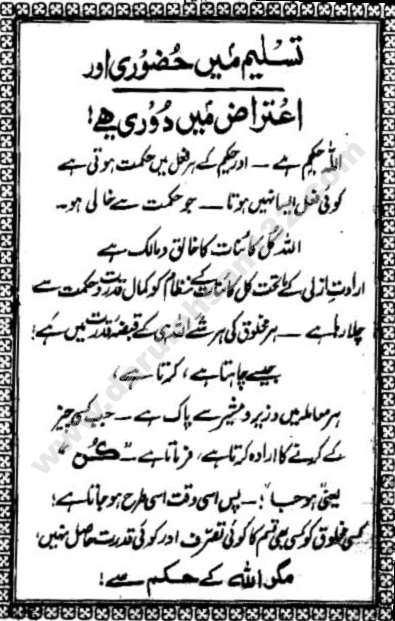 تسلیم میں حضوری اور
اعتراض میں دوری ہے!
اللہ حکیم ہے — اور حکیم کے ہر فعل میں حکمت ہوتی ہے
کوئی فعل ایسا نہیں ہوتا — جو حکمت سے خالی ہو۔
اللہ کل کائنات کا خالق و مالک ہے
ارادتِ ازلی کے ماتحت کل کائنات کے نظام کو کمال قدرت و حکمت سے
چلا رہا ہے — ہر مخلوق کی ہر شے اللہ ہی کے قبضہ قدرت میں ہے!
جیسے چاہتا ہے، کرتا ہے،
ہر معاملہ میں وزیر و مشیر سے پاک ہے — جب کسی چیز
کے کرنے کا ارادہ کرتا ہے، فرماتا ہے — "کُن"
یعنی ہو جا! — پس اسی وقت اسی طرح ہو جاتا ہے!
کسی مخلوق کو کسی بھی قسم کا کوئی تصرف اور کوئی قدرت حاصل نہیں،
مگر اللہ کے حکم سے!